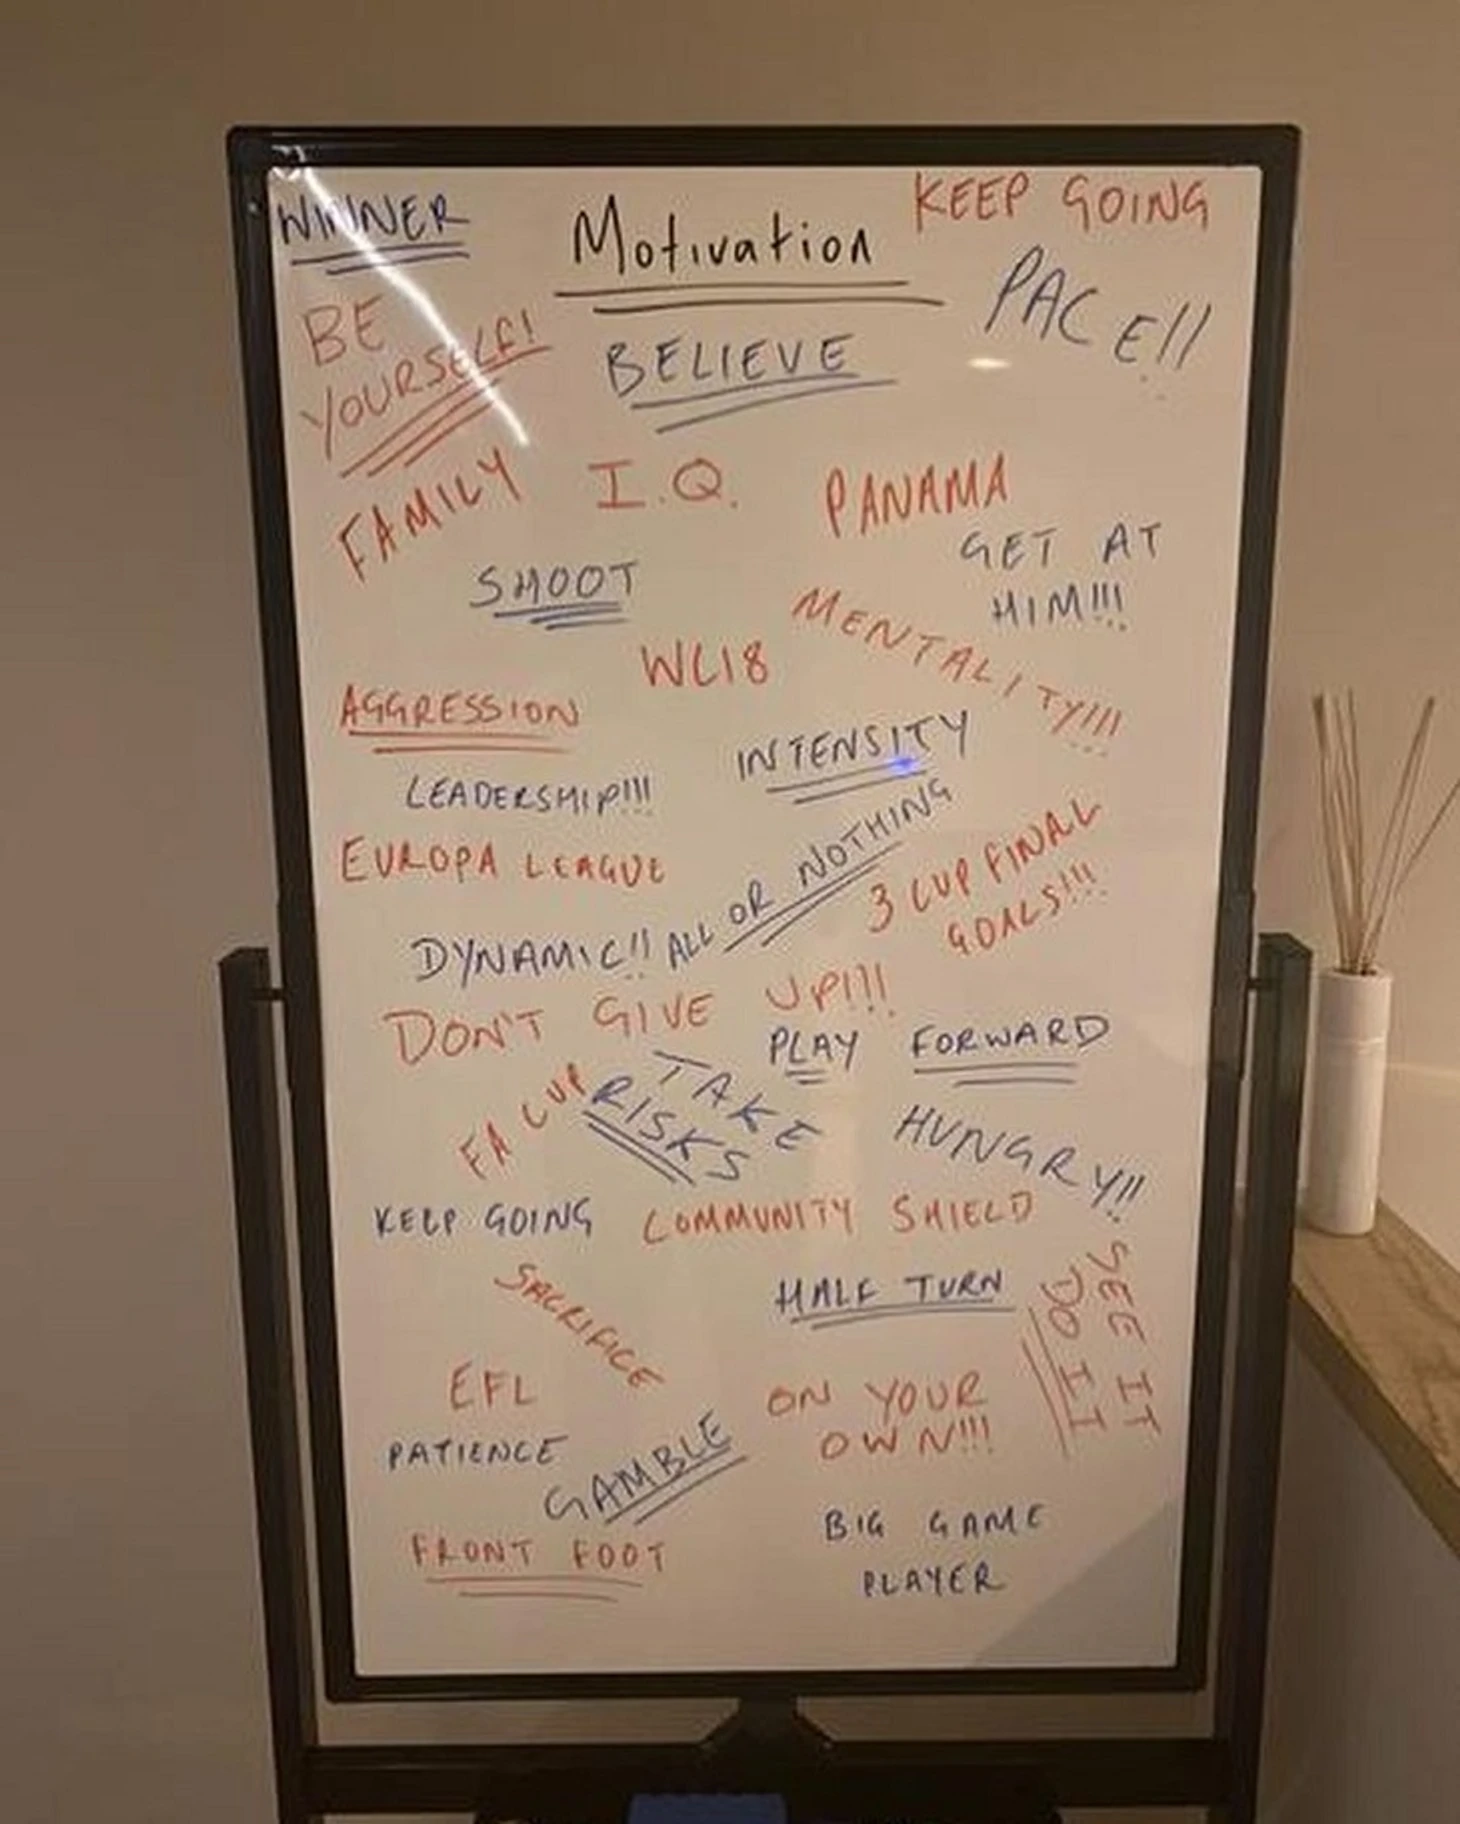 WINNER
Motivation
KEEP GOING
BE
YOURSELF!
BELIEVE
PACE!!
FAMILY
I.Q.
PANAMA
GET AT
HIM!!!
SHOOT
MENTALITY!!!
WC18
AGGRESSION
INTENSITY
LEADERSHIP!!!
EUROPA LEAGUE
ALL OR NOTHING
3 CUP FINAL
GOALS!!!
DYNAMIC!!
DON'T GIVE UP!!!
PLAY FORWARD
FA CUP
TAKE
RISKS
HUNGRY!!
KEEP GOING
COMMUNITY SHIELD
SACRIFICE
HALF TURN
SEE IT
DO IT
EFL
ON YOUR
OWN!!!
PATIENCE
GAMBLE
FRONT FOOT
BIG GAME
PLAYER